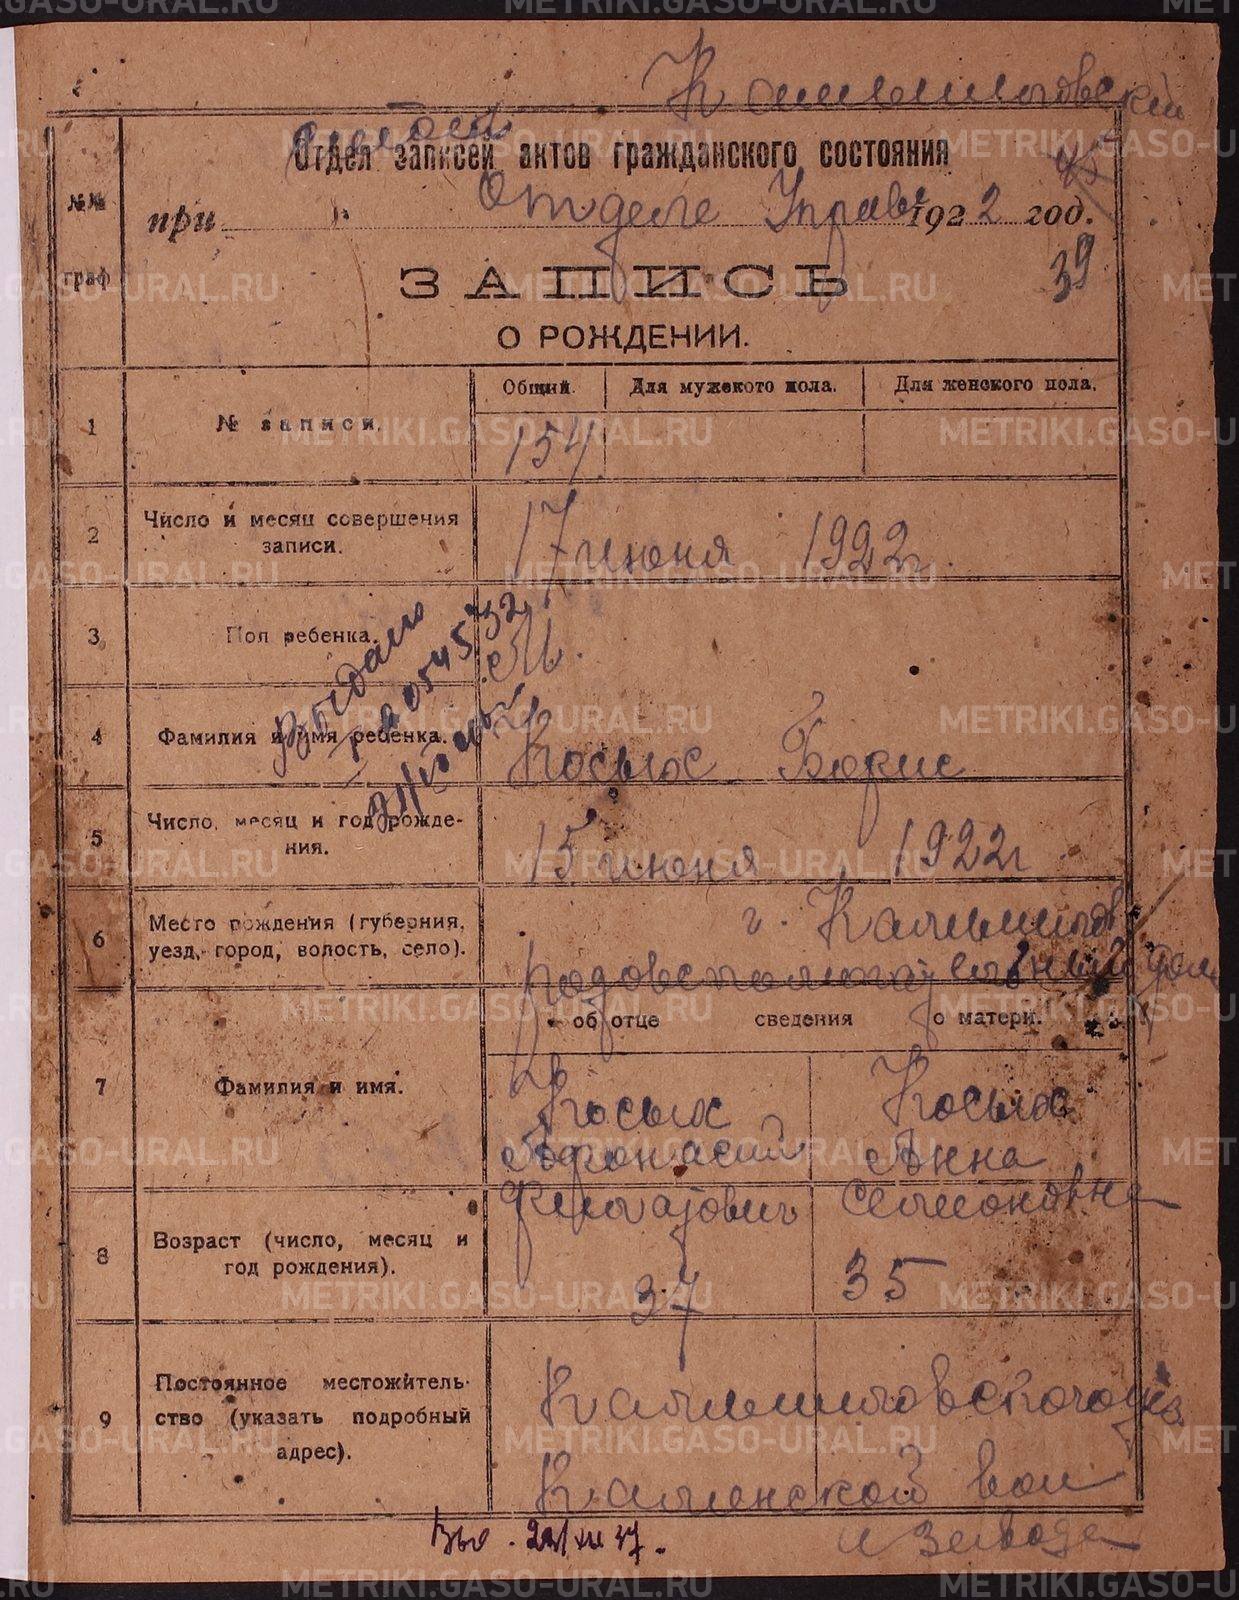 Камышловский
Отдел записей актов гражданского состояния
№№
граф
при Отделе Управ 1922 год.
39
ЗАПИСЬ
О РОЖДЕНИИ.
Общий. Для мужского пола. Для женского пола.
1 № записи. 154
2 Число и месяц совершения
записи. 17 июня 1922 г.
3 Пол ребенка. М.
Выдано
4 Фамилия и имя ребенка. Косых Борис
5 Число, месяц и год рожде-
ния. 15 июня 1922 г
6 Место рождения (губерния,
уезд, город, волость, село).
г. Камышлов
об отце сведения о матери.
7 Фамилия и имя.
Косых Косых
Афонасий Анна
Семеновна
8 Возраст (число, месяц и
год рождения).
37 35
9 Постоянное местожитель-
ство (указать подробный
адрес).
Камышловского уез.
Каменской вол
и завода
METRIKI.GASO-URAL.RU